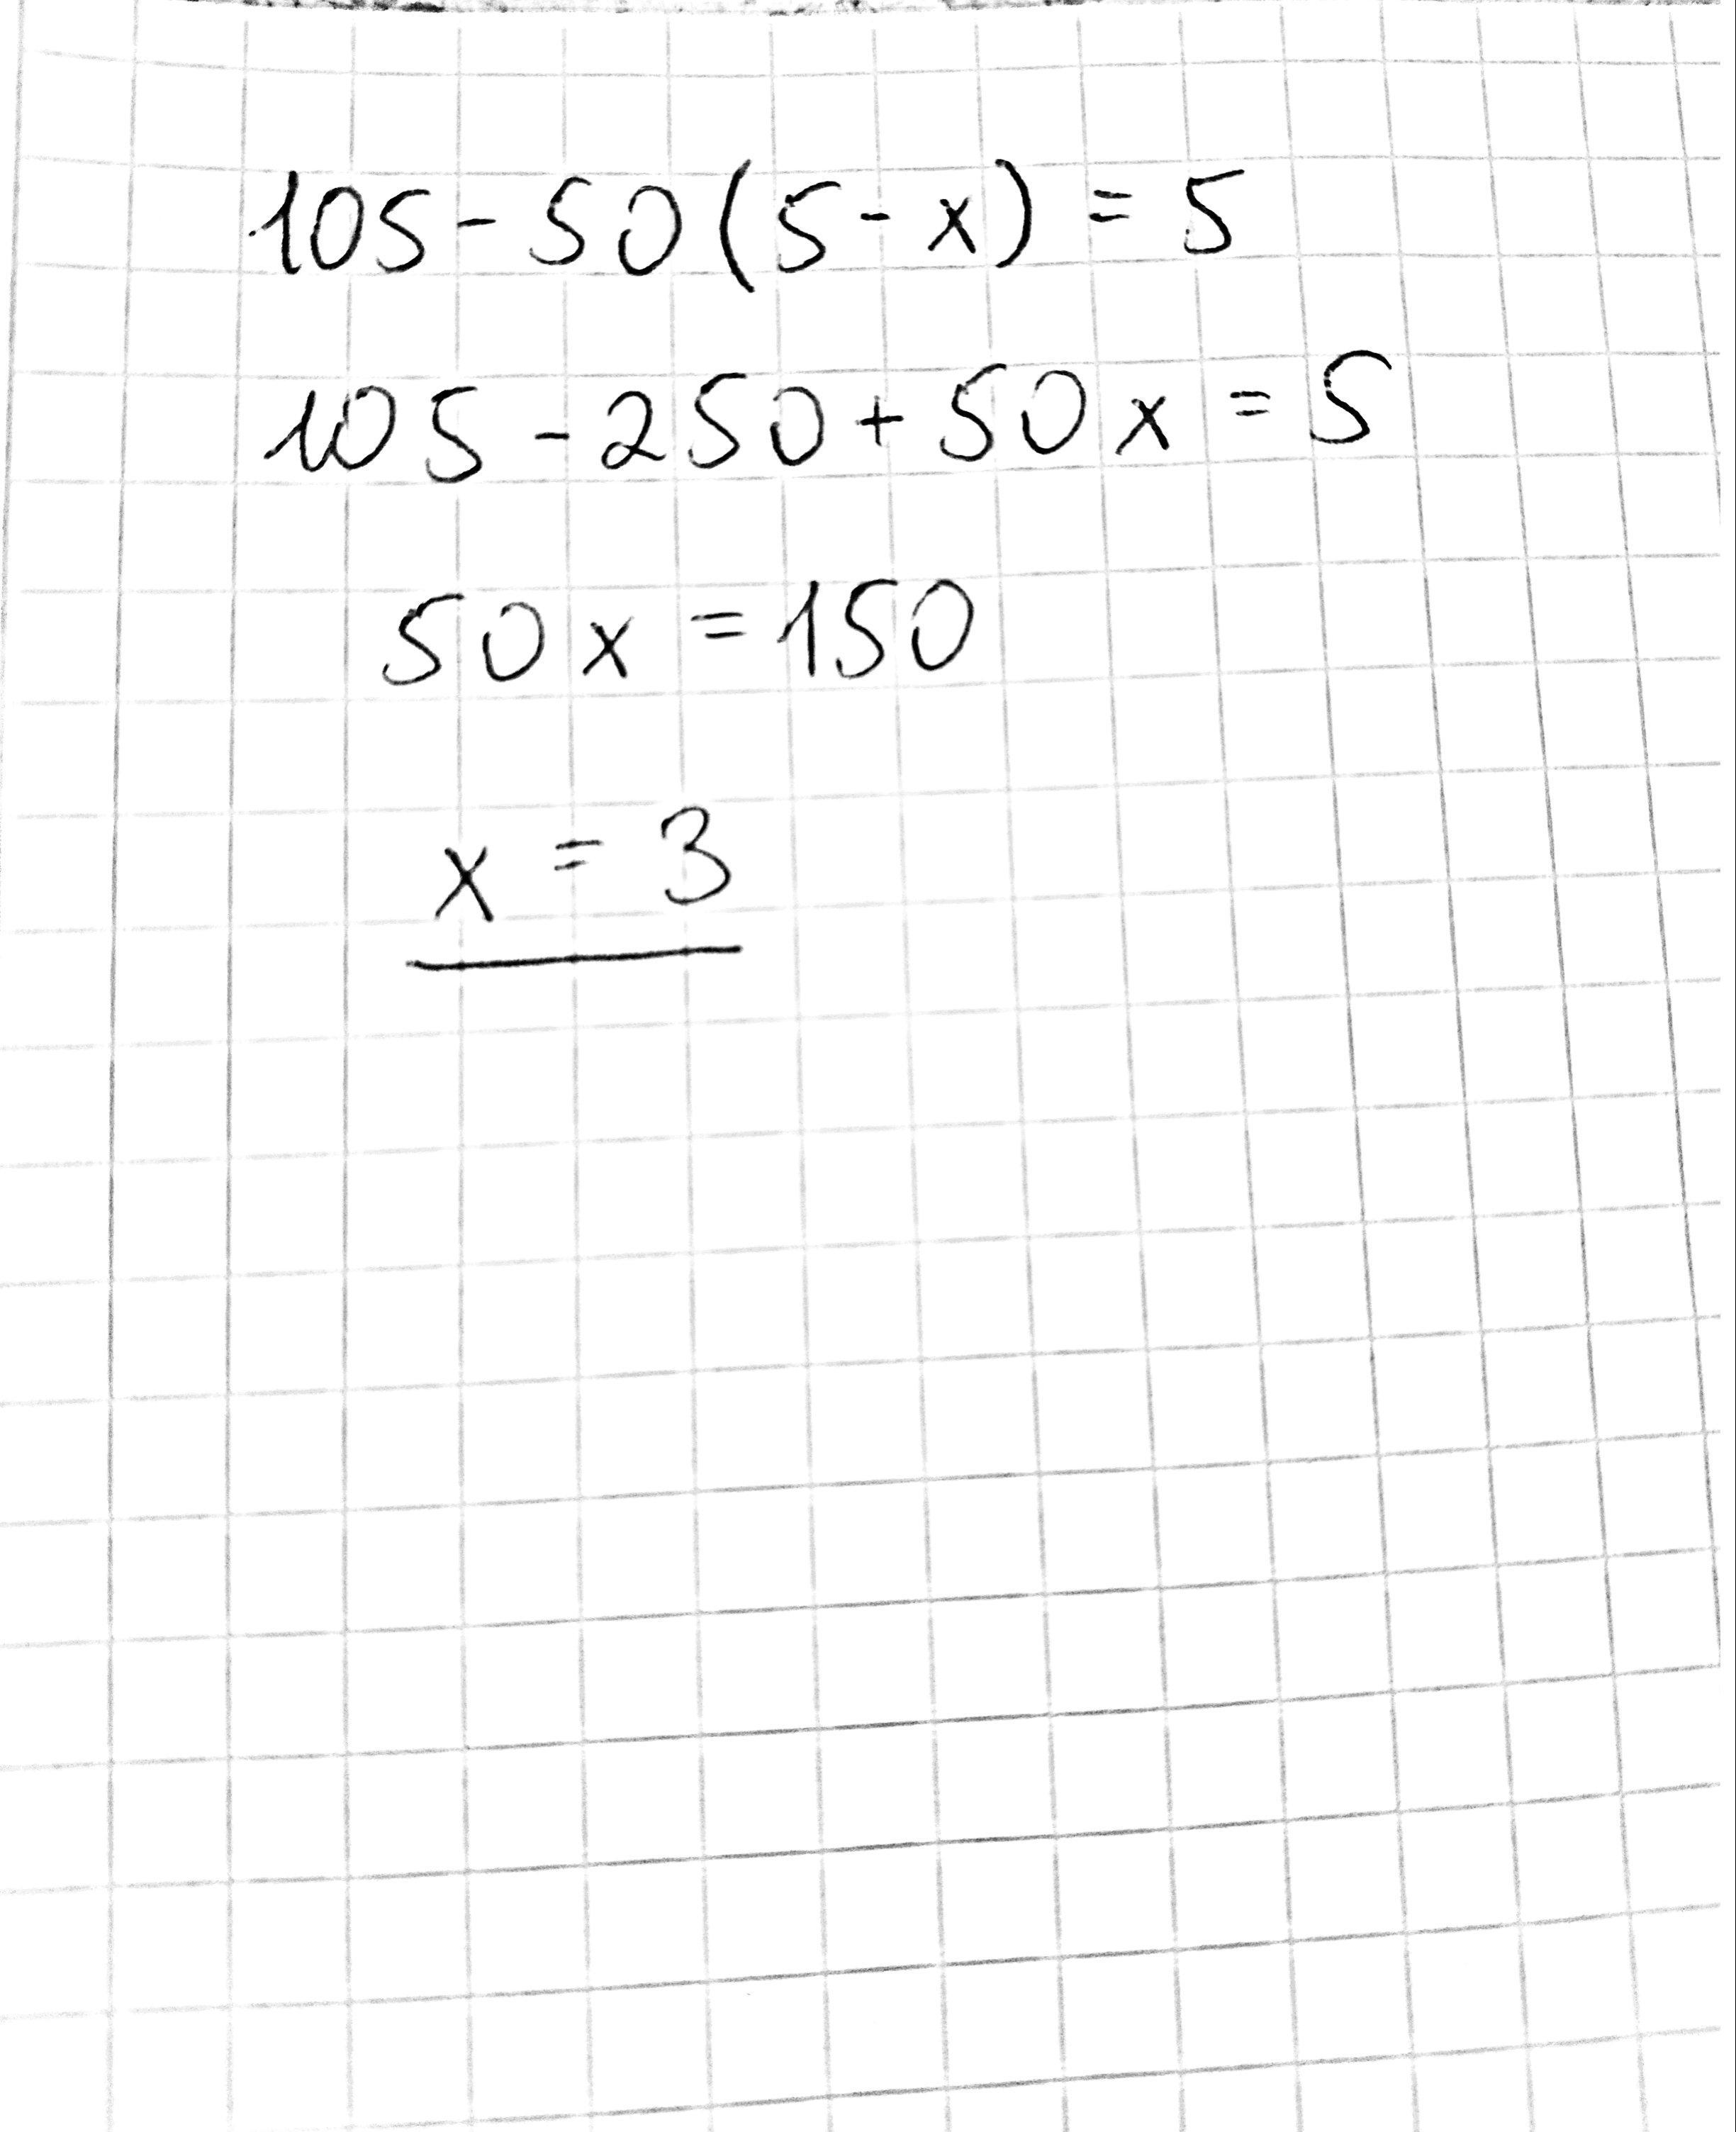 105 - 50(5 - x) = 5
105 - 250 + 50x = 5
50x = 150
x = 3